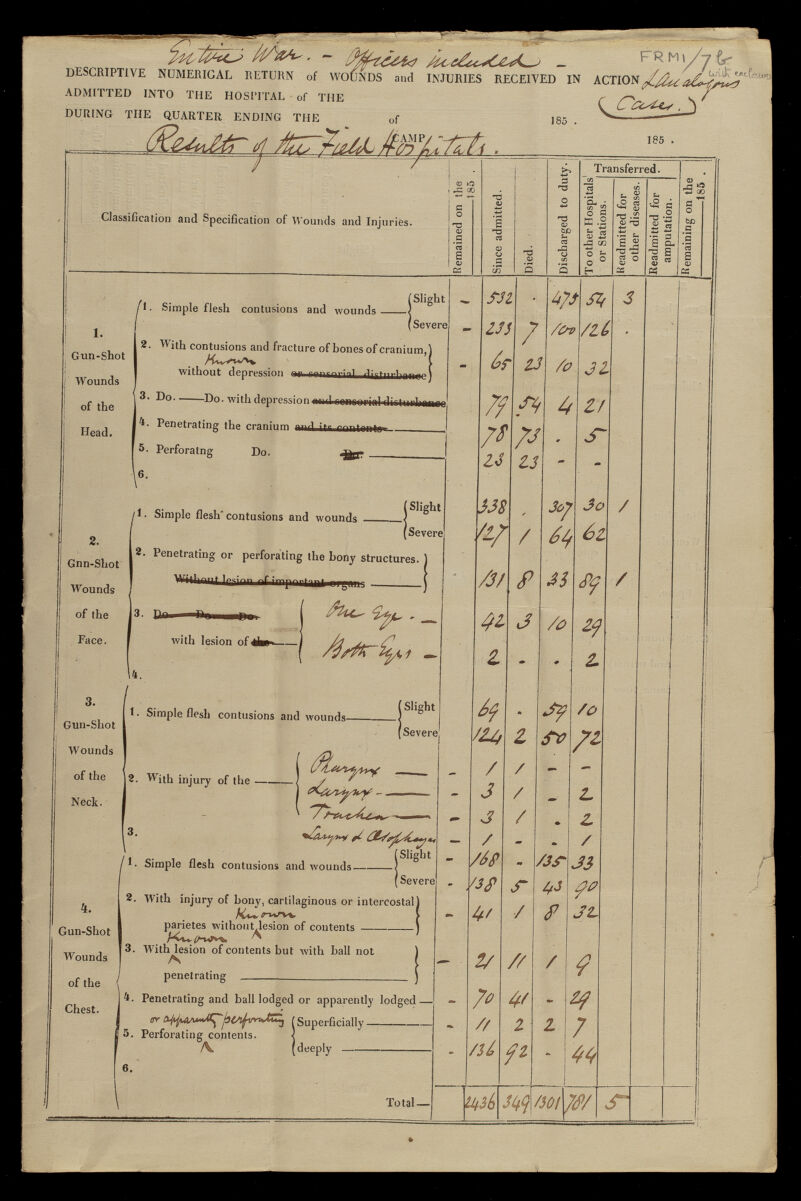 Entire War. - Officers included -
FRM1/7b
with enclosures
DESCRIPTIVE NUMERICAL RETURN of WOUNDS and INJURIES RECEIVED IN ACTION & Analogous
ADMITTED INTO THE HOSPITAL of THE (Cases.)
DURING THE QUARTER ENDING THE of 185 .
CAMP 185 .
Results of the Field Hospitals.
Classification and Specification of Wounds and Injuries. Remained on the 185 . Since admitted. Died. Discharged to duty. Transferred. To other Hospitals or Stations. Readmitted for other diseases. Readmitted for amputation. Remaining on the 185 .
1. Gun-Shot Wounds of the Head.
1. Simple flesh contusions and wounds Slight – 532 . 475 54 3
Severe – 233 7 100 126 .
2. With contusions and fracture of bones of cranium,
Known
without depression or sensorial disturbance – 65 23 10 32
3. Do. Do. with depression and sensorial disturbance 79 54 4 21
4. Penetrating the cranium and its contents 78 73 . 5
5. Perforatng Do. Do. 23 23 - -
6.
2. Gnn-Shot Wounds of the Face.
1. Simple flesh contusions and wounds Slight 338 . 307 30 1
Severe 127 1 64 62
2. Penetrating or perforating the bony structures.
Without lesion of important organs 131 8 33 89 1
3. Do Do Do. One Eye. – 42 3 10 29
with lesion of the Both Eyes – 2 - . 2
4.
3. Gun-Shot Wounds of the Neck.
1. Simple flesh contusions and wounds Slight 69 - 59 10
Severe 124 2 50 72
2. With injury of the Pharynx – - 1 1 - -
Larynx - – - 3 1 - 2
Trachea – - 3 1 . 2
3. Larynx & Œsophagus – 1 - - 1
4. Gun-Shot Wounds of the Chest.
1. Simple flesh contusions and wounds Slight - 168 - 135 33
Severe - 138 5 43 90
2. With injury of bony, cartilaginous or intercostal
Known
parietes without lesion of contents - 41 1 8 32
Known
3. With lesion of contents but with ball not
penetrating – 21 11 1 9
4. Penetrating and ball lodged or apparently lodged – - 70 41 - 29
or apparently perforating
5. Perforating contents. Superficially - 11 2 2 7
deeply - 136 92 - 44
6.
Total – 2436 349 1301 781 5